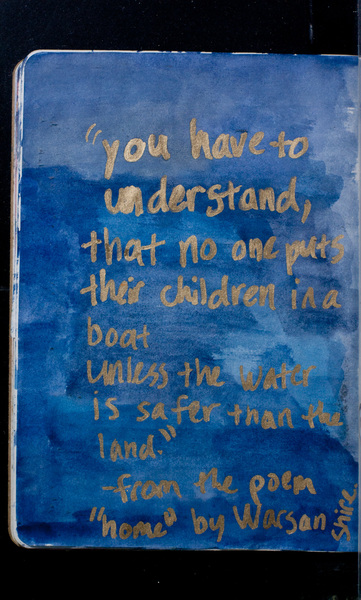 "you have to
understand,
that no one puts
their children in a
boat
unless the water
is safer than the
land."
-from the poem
"home" by Warsan Shire